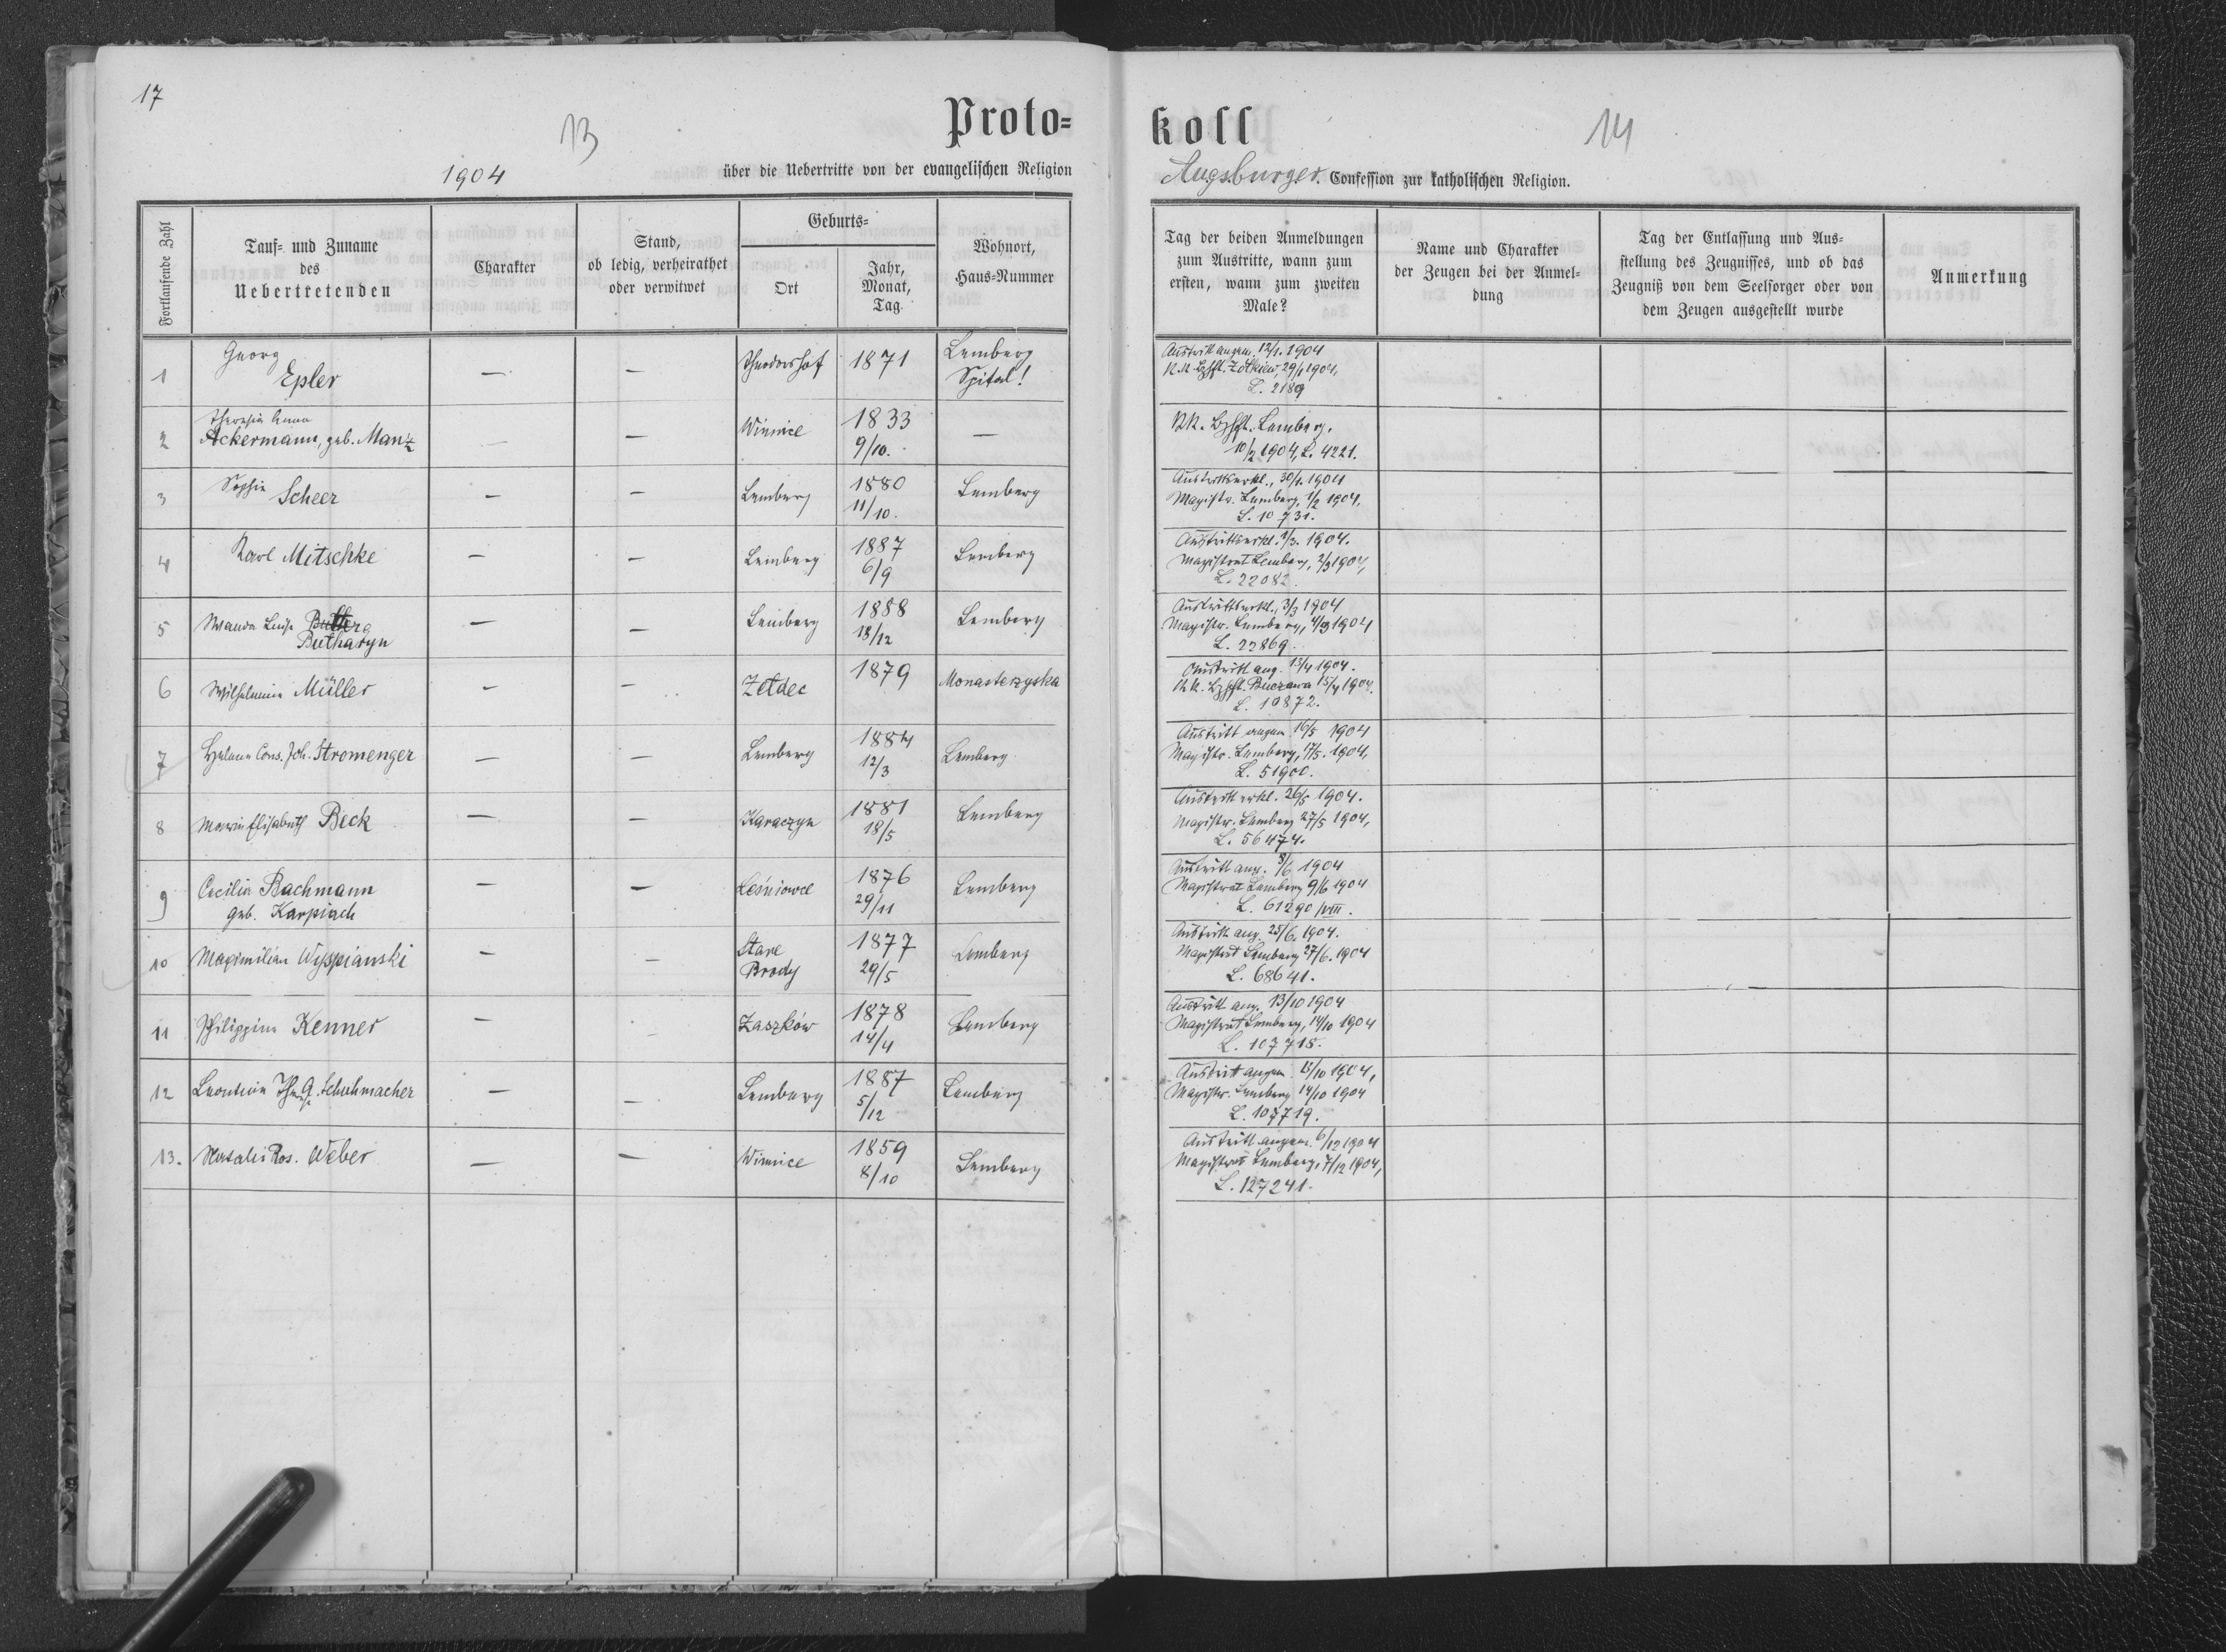 17
13
14
Proto=
koll
1904
über die Uebertritte von der evangelischen Religion
Augsburger. Confession zur katholischen Religion.
Fortlaufende Zahl
Tauf= und Zuname
des
Uebertretenden
Charakter
Stand,
ob ledig, verheirathet
oder verwitwet
Geburts=
Ort
Jahr,
Monat,
Tag
Wohnort,
Haus=Nummer
Tag der beiden Anmeldungen
zum Austritte, wann zum
ersten, wann zum zweiten
Male?
Name und Charakter
der Zeugen bei der Anmel=
dung
Tag der Entlassung und Aus=
stellung des Zeugnisses, und ob das
Zeugniß von dem Seelsorger oder von
dem Zeugen ausgestellt wurde
Anmerkung
1
Georg
Epler
—
—
Theodorshof
1871
Lemberg
Spital!
Austritt angem. 12/1. 1904
K.K. Bzhft. Zółkiew, 29/1 1904,
L. 2189
2
Theresia Anna
Ackermann, geb. Manz
—
—
Winnice
1833
9/10.
—
KK. Bzhft. Lemberg.
10/2 1904, L. 4221.
3
Sophie
Scheer
—
—
Lemberg
1880
11/10.
Lemberg
Austrittserkl., 30/1. 1904
Magistr. Lemberg, 1/2 1904,
L. 10731.
4
Karl Mitschke
—
—
Lemberg
1887
6/9
Lemberg
Austrittserkl. 1/3. 1904.
Magistrat Lemberg, 2/3 1904,
L. 22082.
5
Wanda Luise
Butharyn
—
—
Lemberg
1888
18/12
Lemberg
Austrittserkl., 3/3 1904
Magistr. Lemberg, 4/3 1904
L. 22869.
6
Wilhelmine Müller
—
—
Zeldec
1879
Monasterzyska
Austritt ang. 13/4 1904.
KK. Bzhft. Buczacz 15/4 1904.
L. 10872.
7
Helene Cons. Joh. Stromenger
—
—
Lemberg
1884
12/3
Lemberg
Austritt angem. 16/5 1904
Magistr. Lemberg, 17/5. 1904,
L. 51900.
8
Marie Elisabeth Beck
—
—
Karaczyn
1881
18/5
Lemberg
Austritt erkl. 26/5 1904.
Magistr. Lemberg 27/5 1904,
L. 56474.
9
Cecilia Bachmann
geb. Karpiach
—
—
Leśniowce
1876
29/11
Lemberg
Austritt ang. 8/6 1904
Magistrat Lemberg 9/6 1904
L. 61290/VIII.
10
Maximilian Wyspianski
—
—
Stare
Brody
1877
29/5
Lemberg
Austritt ang. 25/6. 1904.
Magistrat Lemberg 27/6. 1904
L. 68641.
11
Philippine Kenner
—
—
Zaszków
1878
14/4
Lemberg
Austritt ang. 13/10 1904
Magistrat Lemberg, 14/10 1904
L. 107718.
12
Leontine Ther. G. Schuhmacher
—
—
Lemberg
1887
5/12
Lemberg
Austritt angem. 13/10 1904,
Magistr. Lemberg 14/10 1904
L. 107719.
13.
Natalie Ros. Weber
—
—
Winnice
1859
8/10
Lemberg
Austritt angem. 6/12 1904
Magistrat Lemberg, 7/12 1904,
L. 127241.